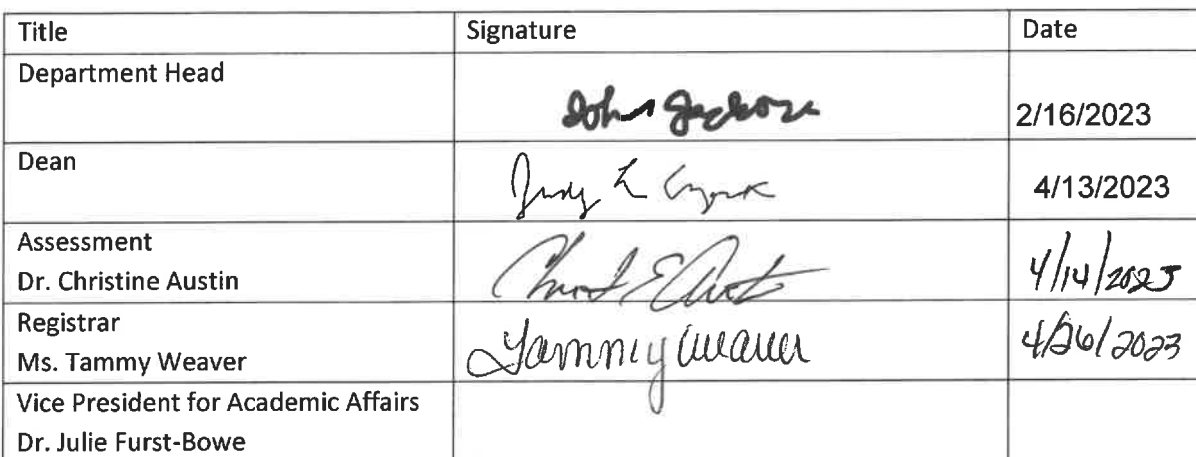 Title Signature Date
Department Head
John Jackson 2/16/2023
Dean
Judy L 4/13/2023
Assessment
Dr. Christine Austin 4/14/2023
Registrar
Ms. Tammy Weaver Tammy Weaver 4/26/2023
Vice President for Academic Affairs
Dr. Julie Furst-Bowe